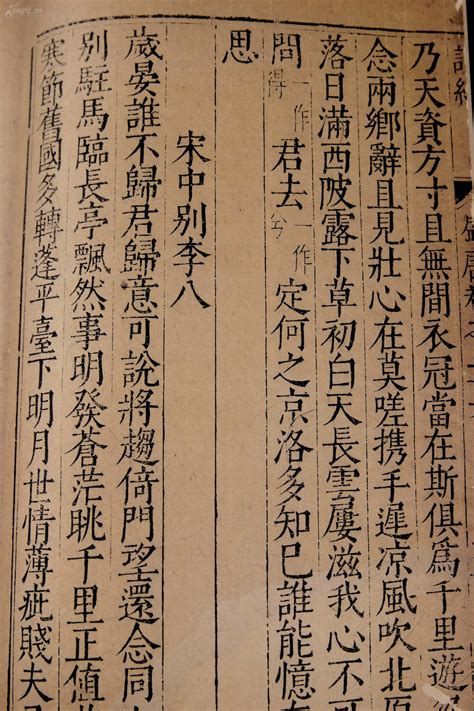 詩紀
乃天資方寸且無間衣冠當在斯俱爲千里遊
念兩鄉辭且見壯心在莫嗟携手遲凉風吹北原
落日滿西陂露下草初白天長雲屢滋我心不可
問一作得君去一作兮定何之京洛多知巳誰能憶
思
宋中别李八
歲晏誰不歸君歸意可說將趨倚門望還念同
别駐馬臨長亭飄然事明發蒼茫眺千里正值
寒節舊國多轉蓬平臺下明月世情薄疵賤夫